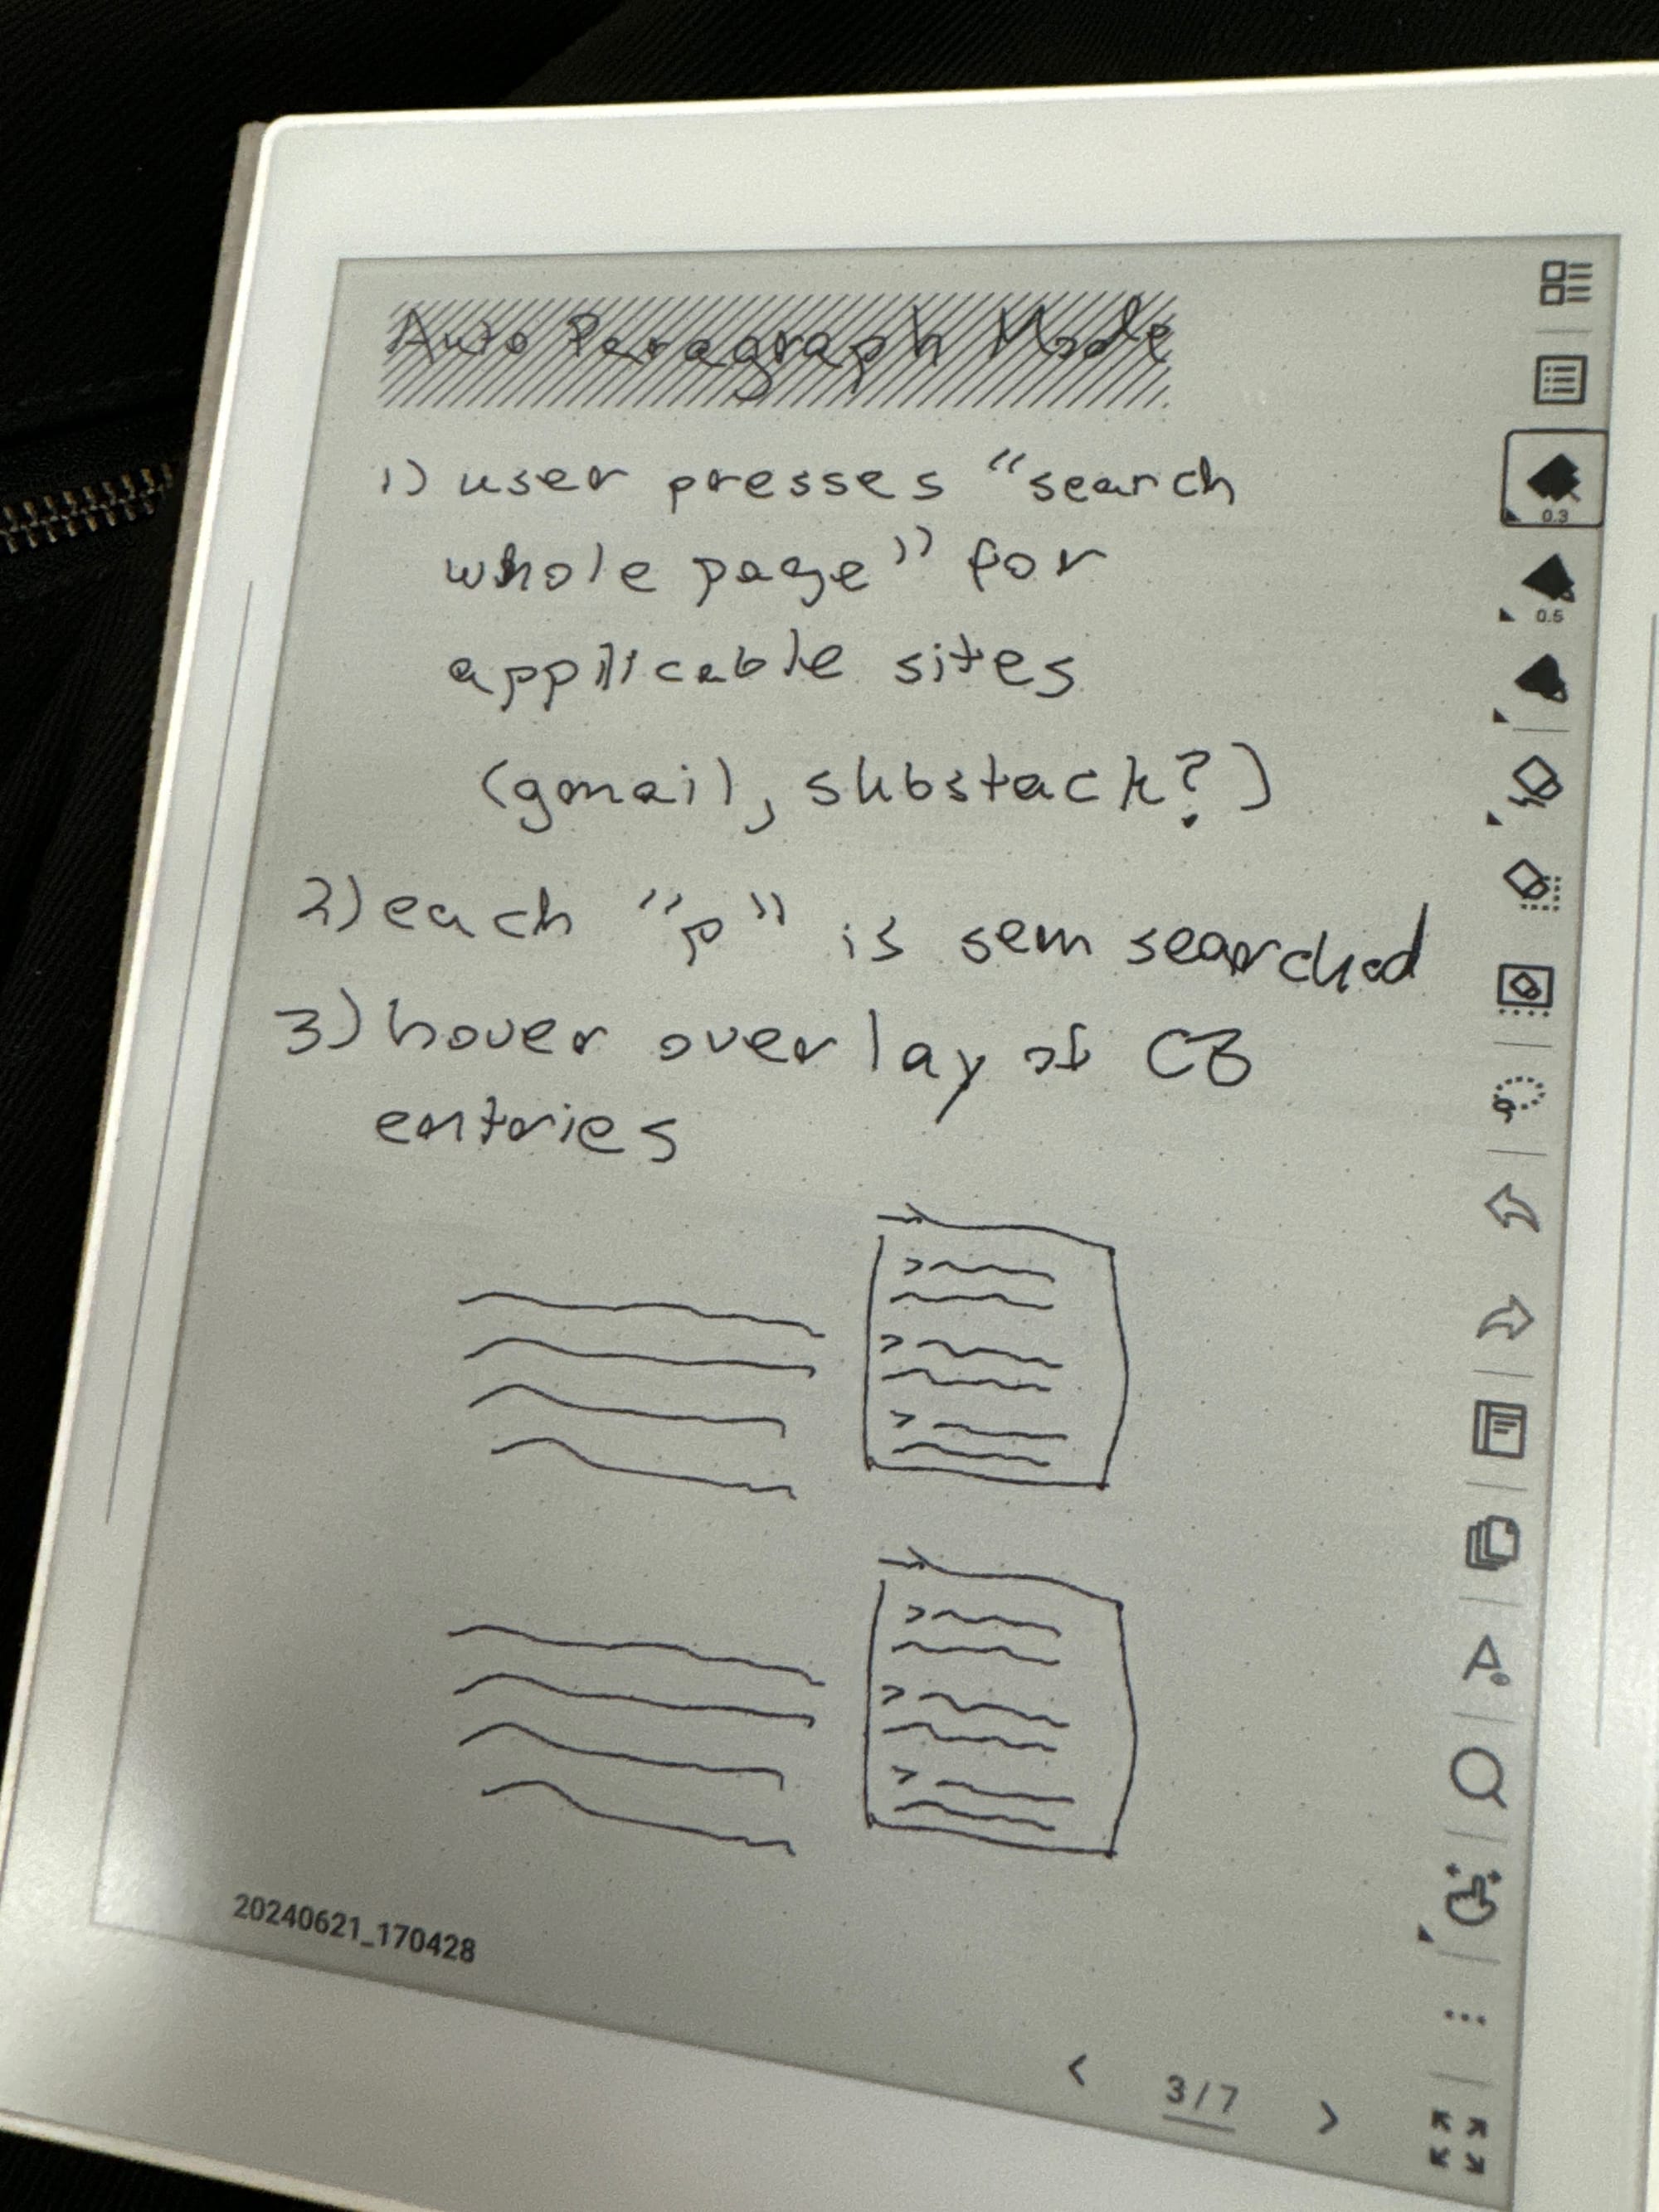 Auto Paragraph Mode
1) user presses "search
whole page" for
applicable sites
(gmail, substack?)
2) each "p" is sem searched
3) hover overlay of CB
entries
20240621_170428
3/7
0.3
0.5